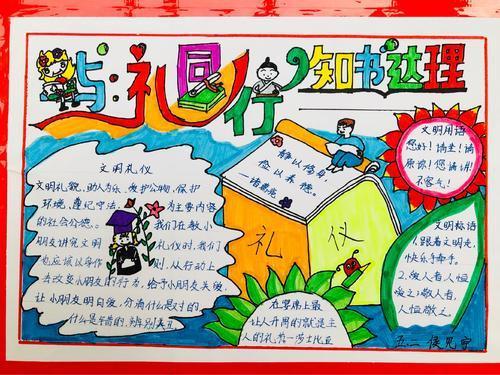 与:礼同行 知书达理
文明礼仪
文明礼貌,助人为乐,爱护公物,保护
环境,遵纪守法,为主要内容
的社会公德。我们在教小
朋友讲究文明礼仪时,我们
应该以身作则,从行动上
去改变小朋友的行为,给予小朋友关爱,
让小朋友明白后,分清什么是对的
静以修身,
俭以养德。
—诸葛亮
礼 仪
文明用语
您好!请坐!请
原谅!您请讲!
不客气!
文明标语
1.跟着文明走,
快乐手牵手。
2.爱人者人恒
爱之;敬人者,
人恒敬之。
在宴席上最
让人开胃的就是主
人的礼节。—莎士比亚
五.二